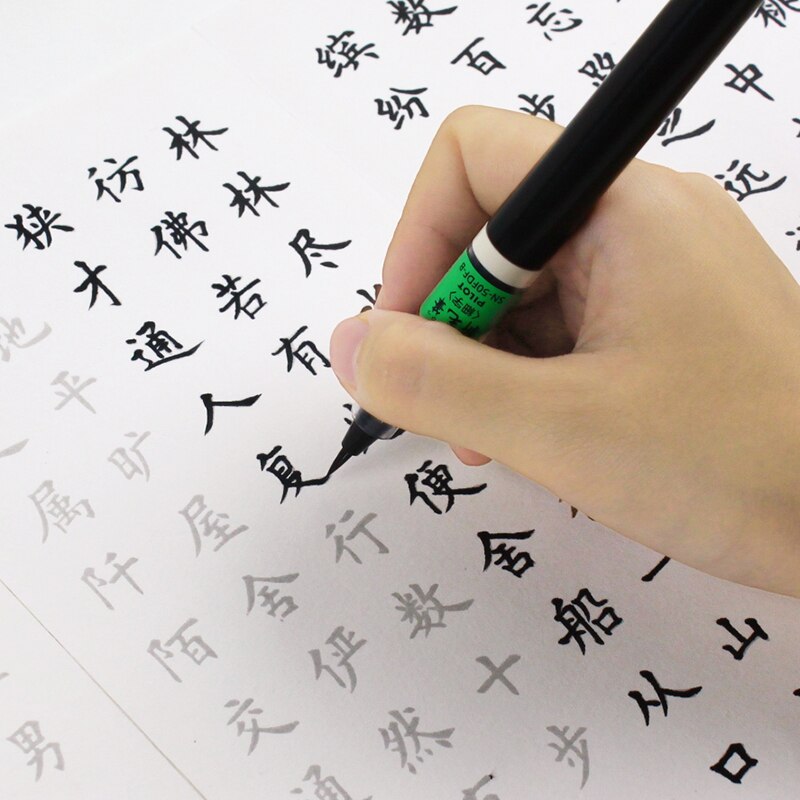 桃
中
忘路之远
数百步
缤纷
林林尽水一山
仿佛若有便舍船从口
狭才通人复行数十步
地平旷屋舍俨然
属阡陌交通
男
PILOT
SN-50FDF-B